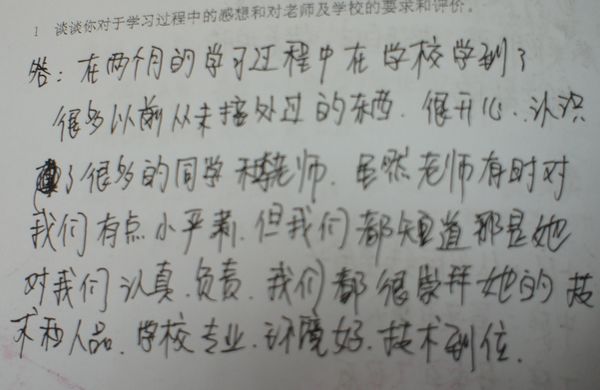 1 谈谈你对于学习过程中的感想和对老师及学校的要求和评价。
答：在两个月的学习过程中在学校学到了
很多以前从未接处过的东西．很开心．认识
了很多的同学和李老师．虽然老师有时对
我们有点小严肃．但我们都知道那是她
对我们认真．负责．我们都很崇拜她的技
术和人品．学校专业．环境好．技术到位．